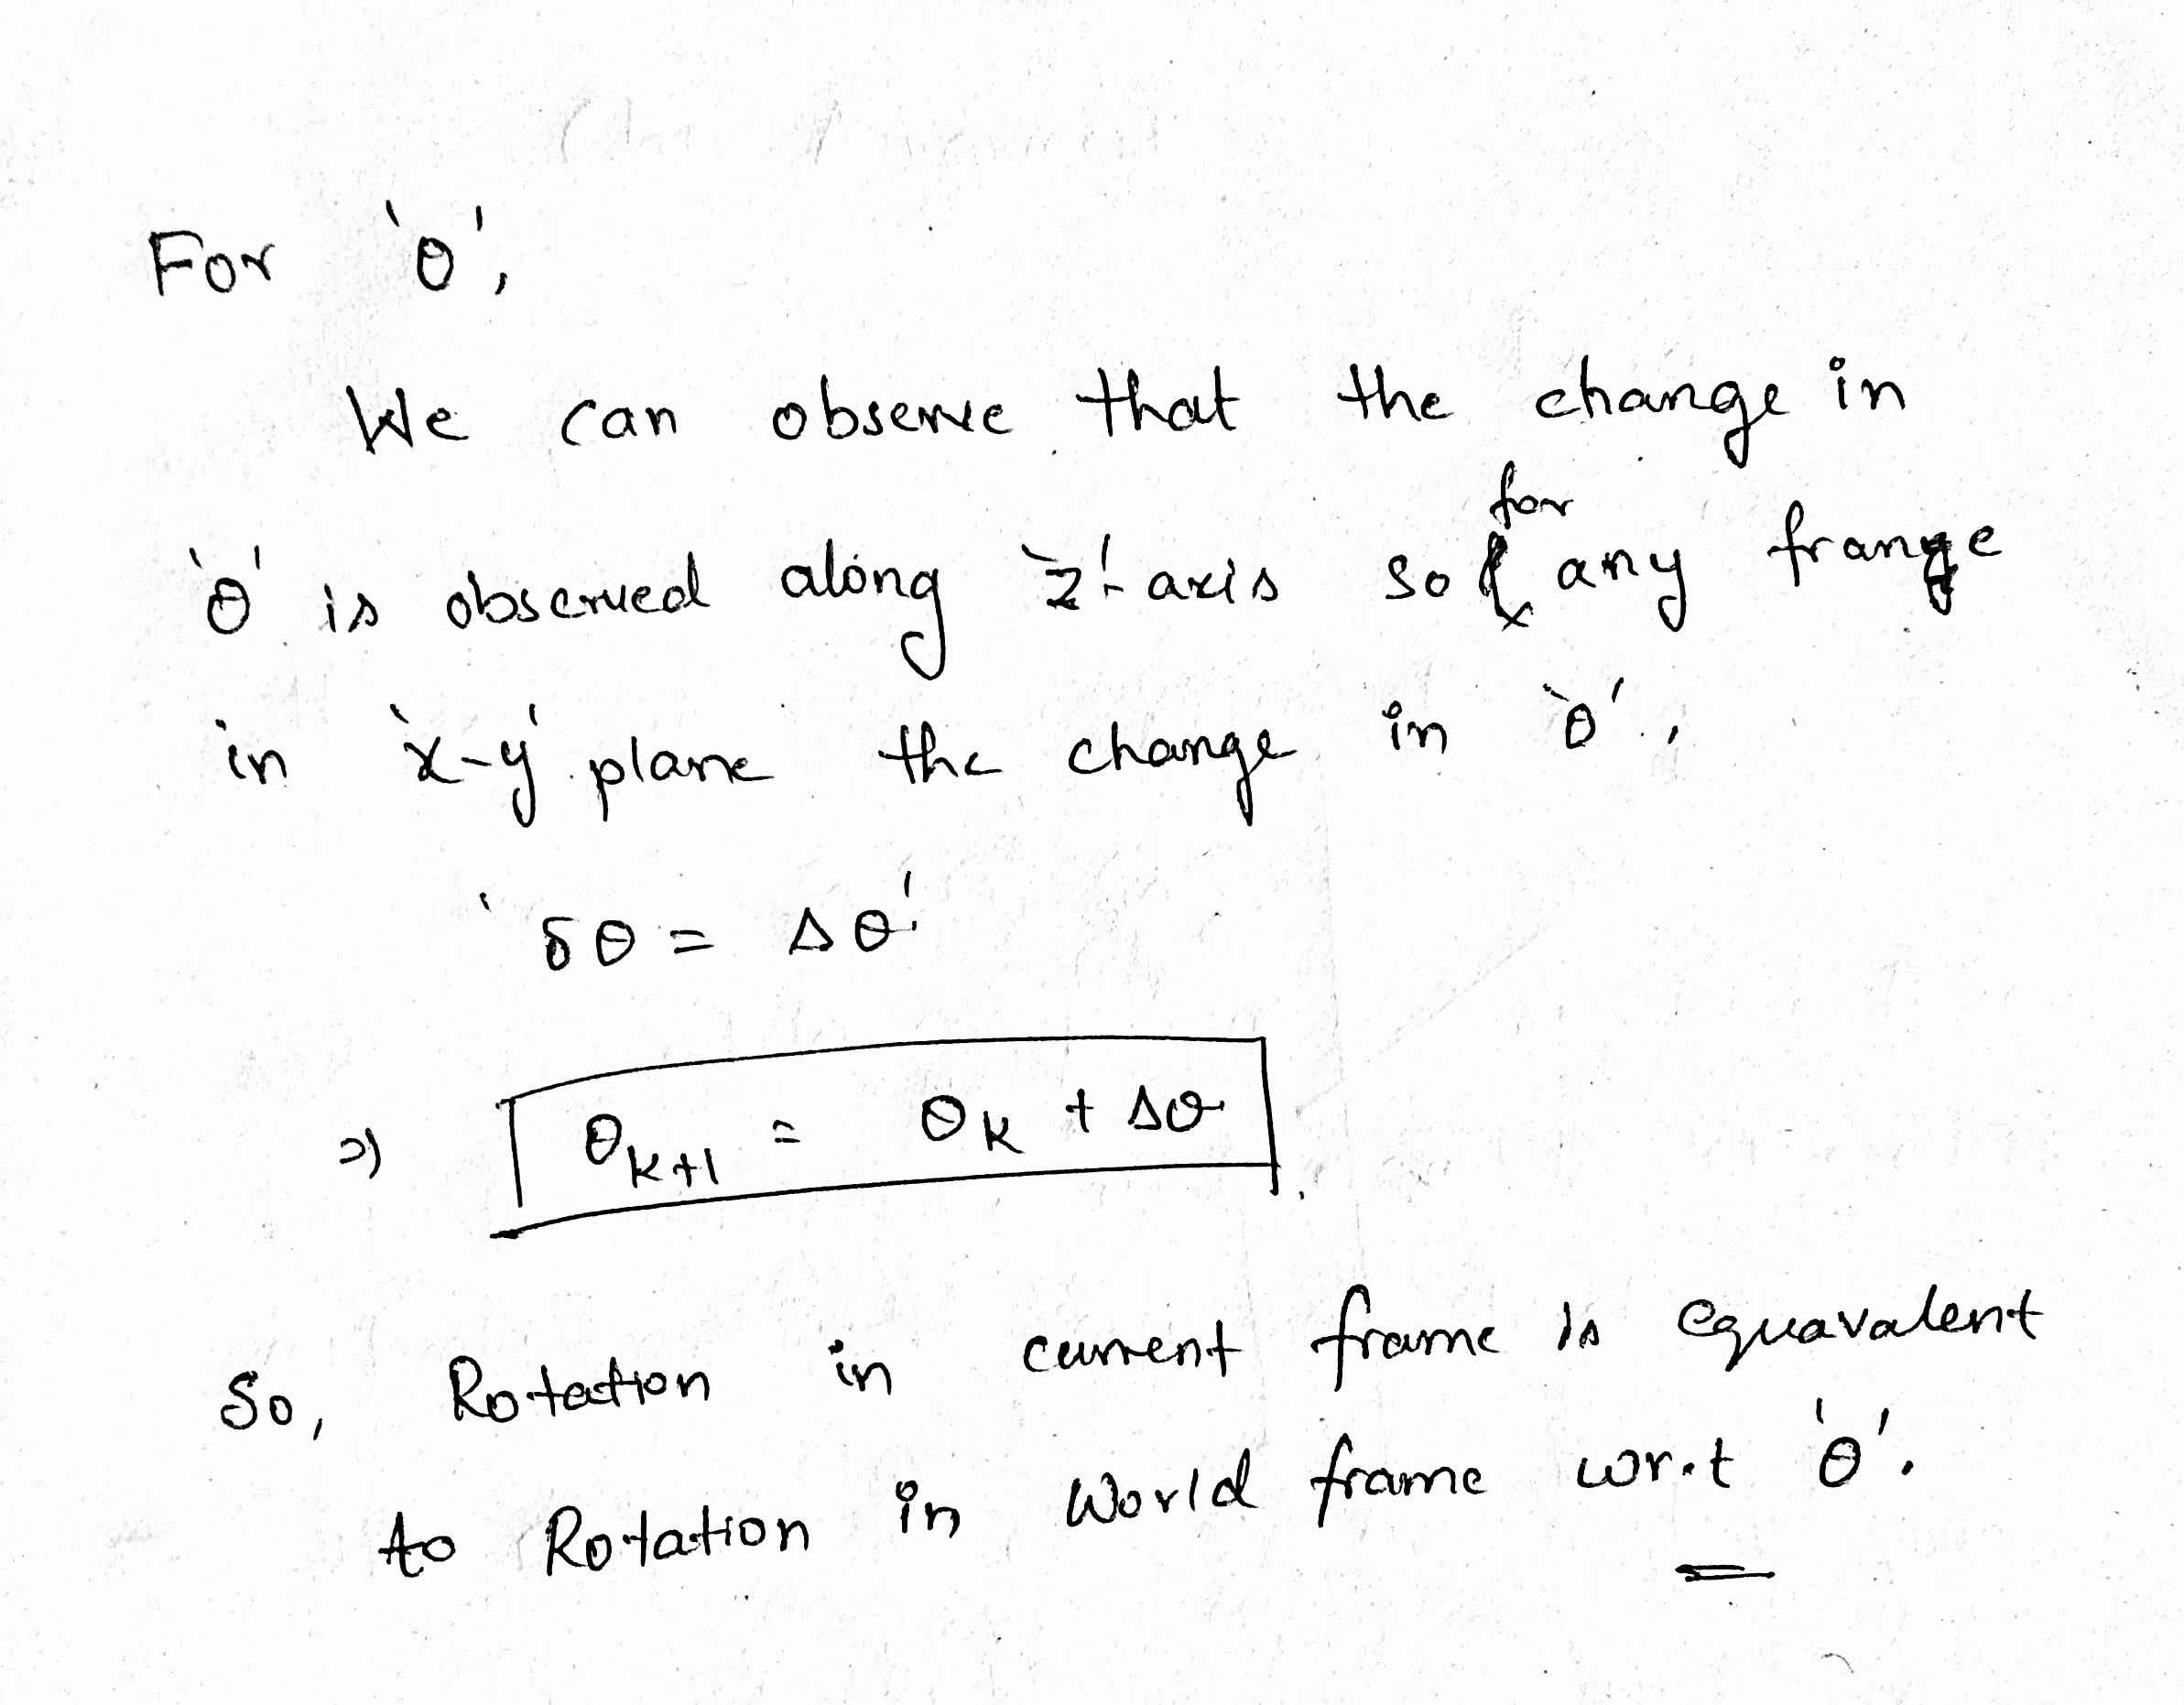 For 'θ',
We can observe that the change in
'θ' is observed along 'z'-axis so for any frange
in 'x-y' plane the change in 'θ',
'δθ = Δθ'
⇒ θₖ₊₁ = θₖ + Δθ
So, Rotation in current frame is equavalent
to Rotation in World frame w.r.t 'θ'.